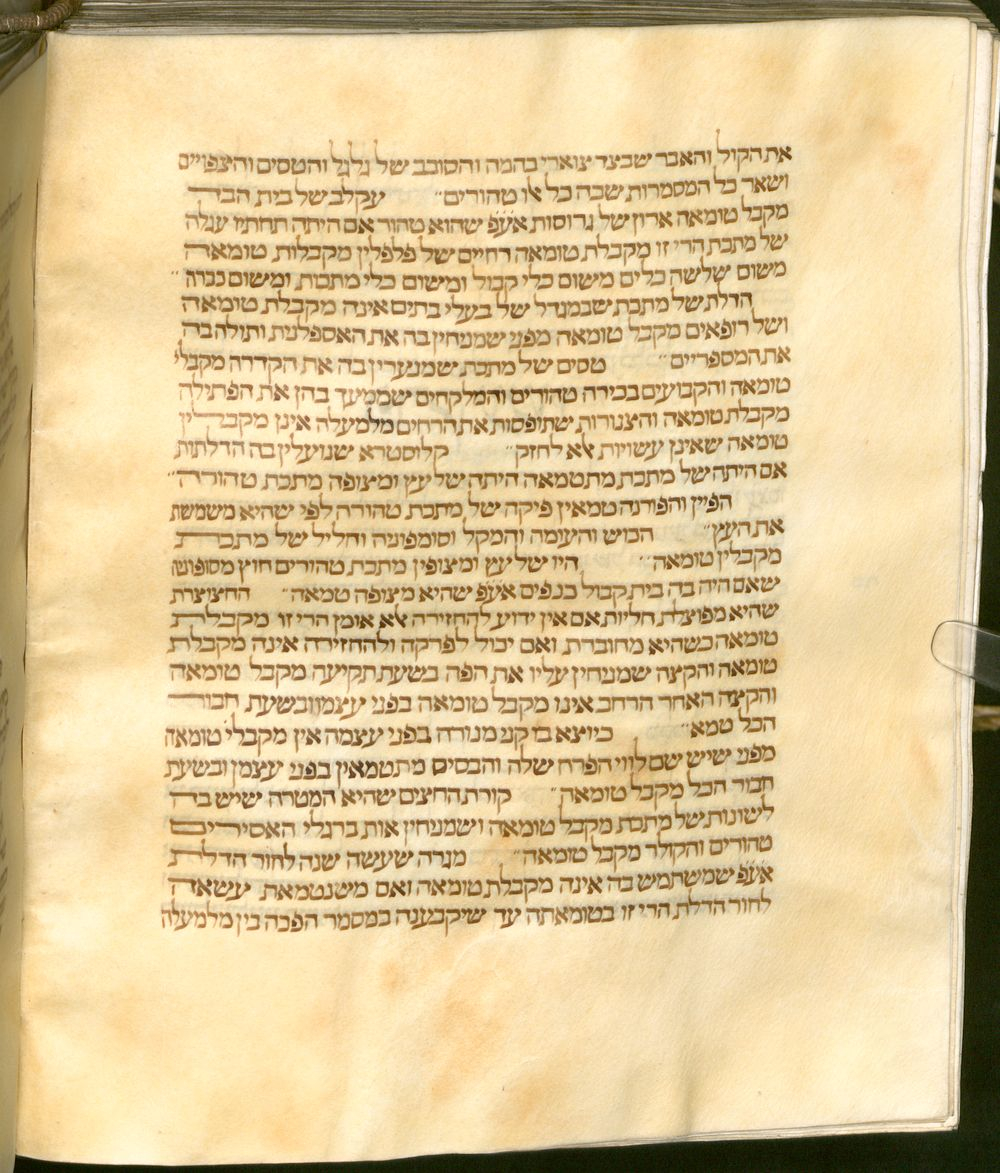 את הקול והאבר שבצד צוארי בהמה והסובב של גלגל והטסים והצפויים
ושאר כל המסמרות שבה כל אלו טהורים״ עקלב של בית הבד
מקבל טומאה ארון של גרוסות אע̇פ̇ שהוא טהור אם היתה תחתיו עגלה
של מתכת הרי זו מקבלת טומאה רחיים של פלפלין מקבלות טומאה
משום שלשה כלים משום כלי קבול ומשום כלי מתכות ומשום כברה״
הדלת של מתכת שבמגדל של בעלי בתים אינה מקבלת טומאה
ושל רופאים מקבל טומאה מפני שמניחין בה את האספלנית ותולה בה
את המספריים״ טסים של מתכת שמנערין בה את הקדרה מקבלי
טומאה והקבועים בכירה טהורים והמלקחים שממעך בהן את הפתילה
מקבלת טומאה והצנורות שתופסות את הרחים מלמעלה אינן מקבלין
טומאה שאינן עשויות אלא לחזק״ קלוסטרא שנועלין בה הדלתות
אם היתה של מתכת מתטמאה היתה של עץ ומצופה מתכת טהורה״
הפין והפורנה טמאין פיקה של מתכת טהורה לפי שהיא משמשת
את העץ״ הכוש והעומה והמקל וסומפוניה וחליל של מתכת
מקבלין טומאה״ היו של עץ ומצופין מתכת טהורים חוץ מסופוניה
שאם היה בה בית קבול כנפים אע̇פ̇ שהיא מצופה טמאה״ החצוצרת
שהיא מפוצלת חליות אם אין ידוע להחזירה אלא אומן הרי זו מקבלת
טומאה כשהיא מחוברת ואם יכול לפרקה ולהחזירה אינה מקבלת
טומאה והקצה שמניחין עליו את הפה בשעת תקיעה מקבל טומאה
והקצה האחר הרחב אינו מקבל טומאה בפני עצמו ובשעת חבור
הכל טמא״ כיוצא בו קני מנורה בפני עצמה אין מקבלי טומאה
מפני שיש שם לווי הפרח שלה והבסיס מתטמאין בפני עצמן ובשעת
חבור הכל מקבל טומאה״ קורת החצים שהיא המטרה שיש בה
לשונות של מתכת מקבל טומאה ושמניחין אות ברגלי האסירים
טהורים והקולר מקבל טומאה״ מגרה שעשה שנה לחור הדלת
אע̇פ̇ שמשתמש בה אינה מקבלת טומאה ואם משנטמאת עשאה
לחור הדלת הרי זו בטומאתה עד שיקבענה במסמר הפכה בין מלמעלה